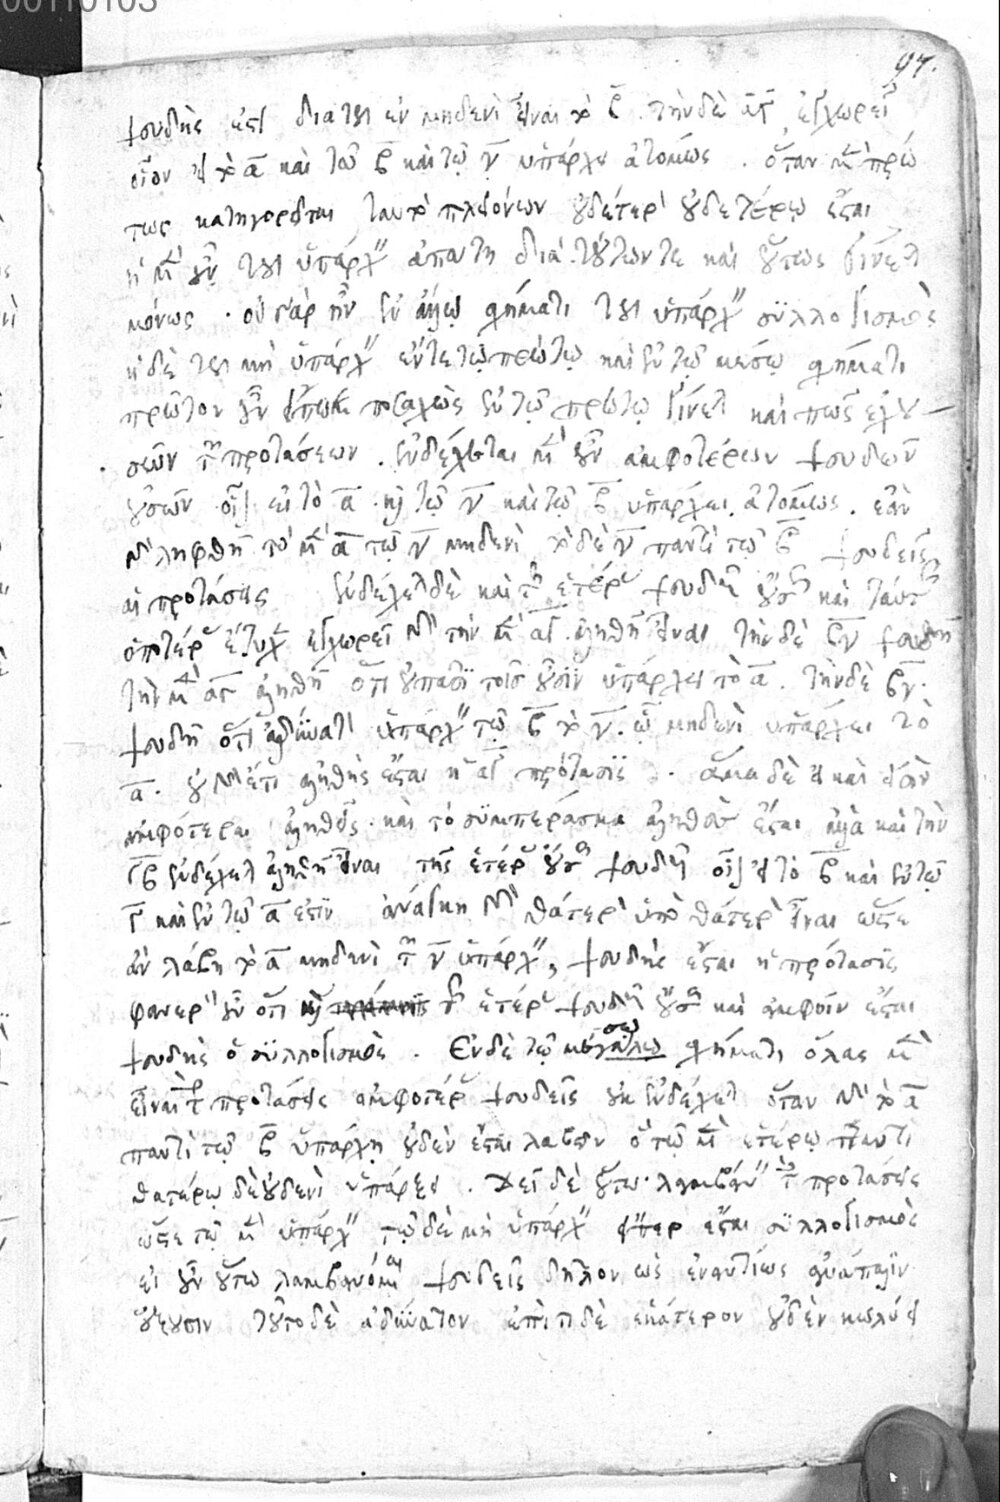 00110103
97.
ψευδής ἐστι διὰ τὸ ἐν μηδενὶ εἶναι τὸ β. τὴν δὲ αγ ἐγχωρεῖ
οἷον εἰ τὸ α καὶ τῷ β καὶ τῷ γ ὑπάρχει ἀτόμως. ὅταν γὰρ πρώ
τως κατηγορῆται ταὐτὸ πλειόνων οὐδέτερον οὐδετέρῳ ἔσται
ἡ μὲν οὖν τοῦ ὑπάρχειν ἀπάτη διὰ τούτων τε καὶ οὕτως γίνεται
μόνως. οὐ γὰρ ἦν ἐν ἄλλῳ σχήματι τοῦ ὑπάρχειν συλλογισμὸς
ἡ δὲ τοῦ μὴ ὑπάρχειν ἔν τε τῷ πρώτῳ καὶ ἐν τῷ μέσῳ σχήματι
πρῶτον οὖν εἴπωμεν ποσαχῶς ἐν τῷ πρώτῳ γίνεται καὶ πῶς ἐχου
σῶν τῶν προτάσεων. ἐνδέχεται μὲν οὖν ἀμφοτέρων ψευδῶν
οὐσῶν οἷον εἰ τὸ α καὶ τῷ γ καὶ τῷ β ὑπάρχει ἀτόμως. ἐὰν
γὰρ ληφθῇ τὸ μὲν α τῷ γ μηδενὶ τὸ δὲ γ παντὶ τῷ β ψευδεῖς
αἱ προτάσεις ἐνδέχεται δὲ καὶ τῆς ἑτέρας ψευδοῦς οὔσης καὶ ταύτης
ὁποτέρας ἔτυχεν ἐγχωρεῖ γὰρ τὴν μὲν αγ ἀληθῆ εἶναι τὴν δὲ βγ ψευδῆ
τὴν μὲν αγ ἀληθῆ ὅτι οὐ πᾶσι τοῖς οὖσιν ὑπάρχει τὸ α. τὴν δὲ βγ.
ψευδῆ ὅτι ἀδύνατον ὑπάρχειν τῷ β τὸ γ. ᾧ μηδενὶ ὑπάρχει τὸ
α. οὐ γὰρ ἔτι ἀληθὴς ἔσται ἡ αγ πρότασις. ἅμα δὲ εἰ καὶ εἰσὶν
ἀμφότεραι ἀληθεῖς. καὶ τὸ συμπέρασμα ἀληθὲς ἔσται ἀλλὰ καὶ τὴν
γβ ἐνδέχεται ἀληθῆ εἶναι τῆς ἑτέρας οὔσης ψευδοῦς οἷον εἰ τὸ β καὶ ἐν τῷ
γ καὶ ἐν τῷ α ἐστίν ἀνάγκη γὰρ θάτερον ὑπὸ θάτερον εἶναι ὥστε
ἂν λάβῃ τὸ α μηδενὶ τῷ γ ὑπάρχειν, ψευδὴς ἔσται ἡ πρότασις
φανερὸν οὖν ὅτι καὶ τῆς ἑτέρας ψευδοῦς οὔσης καὶ ἀμφοῖν ἔσται
ψευδὴς ὁ συλλογισμός. Ἐν δὲ τῷ μέσῳ σχήματι ὅλας μὲν
εἶναι τὰς προτάσεις ἀμφοτέρας ψευδεῖς οὐκ ἐνδέχεται ὅταν γὰρ τὸ α
παντὶ τῷ β ὑπάρχῃ οὐδὲν ἔσται λαβεῖν ὃ τῷ μὲν ἑτέρῳ παντὶ
θατέρῳ δὲ οὐδενὶ ὑπάρξει. Δεῖ δὲ οὕτω λαμβάνειν τὰς προτάσεις
ὥστε τῷ μὲν ὑπάρχειν τῷ δὲ μὴ ὑπάρχειν εἴπερ ἔσται συλλογισμὸς
εἰ οὖν οὕτω λαμβανόμεναι ψευδεῖς δῆλον ὡς ἐναντίως ἀνάπαλιν
ἕξουσιν τοῦτο δὲ ἀδύνατον ἐπί τι δὲ ἑκάτερον οὐδὲν κωλύει